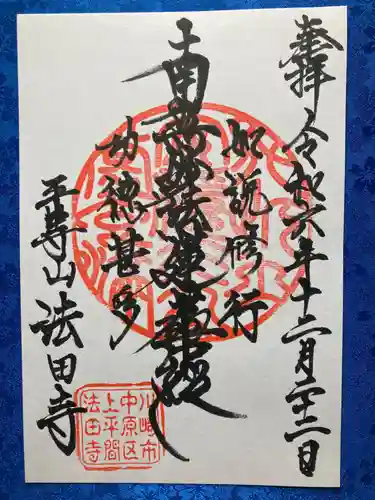 奉拝
令和六年十二月二十二日
如説修行
南無妙法蓮華経
功徳甚多
平等山
法田寺
川崎市
中原区
上平間
法田寺